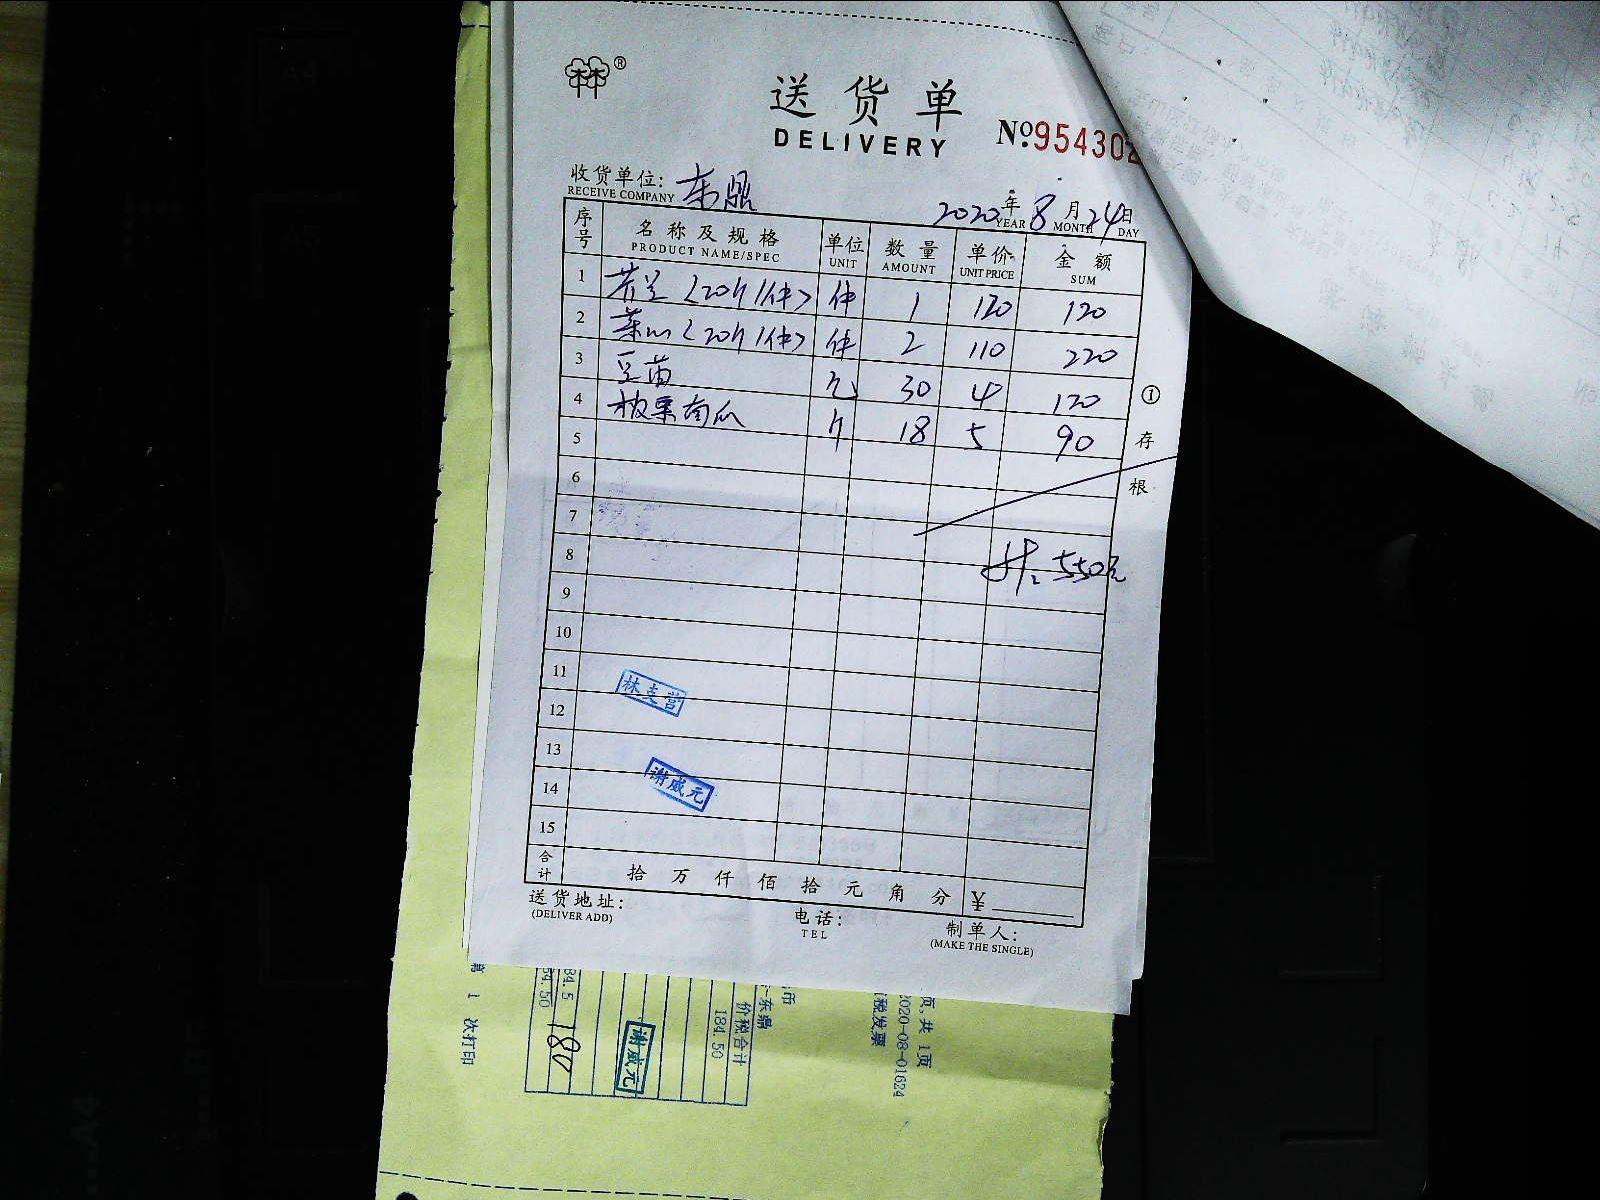 林林®
送货单
DELIVERY
No.954302
收货单位: 东鼎
RECEIVE COMPANY
2020年8月24日
YEAR MONTH DAY
序号 名称及规格 单位 数量 单价 金额
PRODUCT NAME/SPEC UNIT AMOUNT UNIT PRICE SUM
1 芥兰(20斤/件) 件 1 120 120
2 菜心(20斤/件) 件 2 110 220
3 豆苗 包 30 4 120
4 板栗南瓜 斤 18 5 90
5
6
7
8 共:550元
9
10
11
12
13
14
15
①存根
林支营
谢威元
合计 拾 万 仟 佰 拾 元 角 分 ¥
送货地址: 电话: 制单人:
(DELIVER ADD) TEL (MAKE THE SINGLE)
页,共 1页
2020-08-01624
税发票
东鼎
价税合计
184.50
谢威元
84.5
180
54.50
第 1 次打印